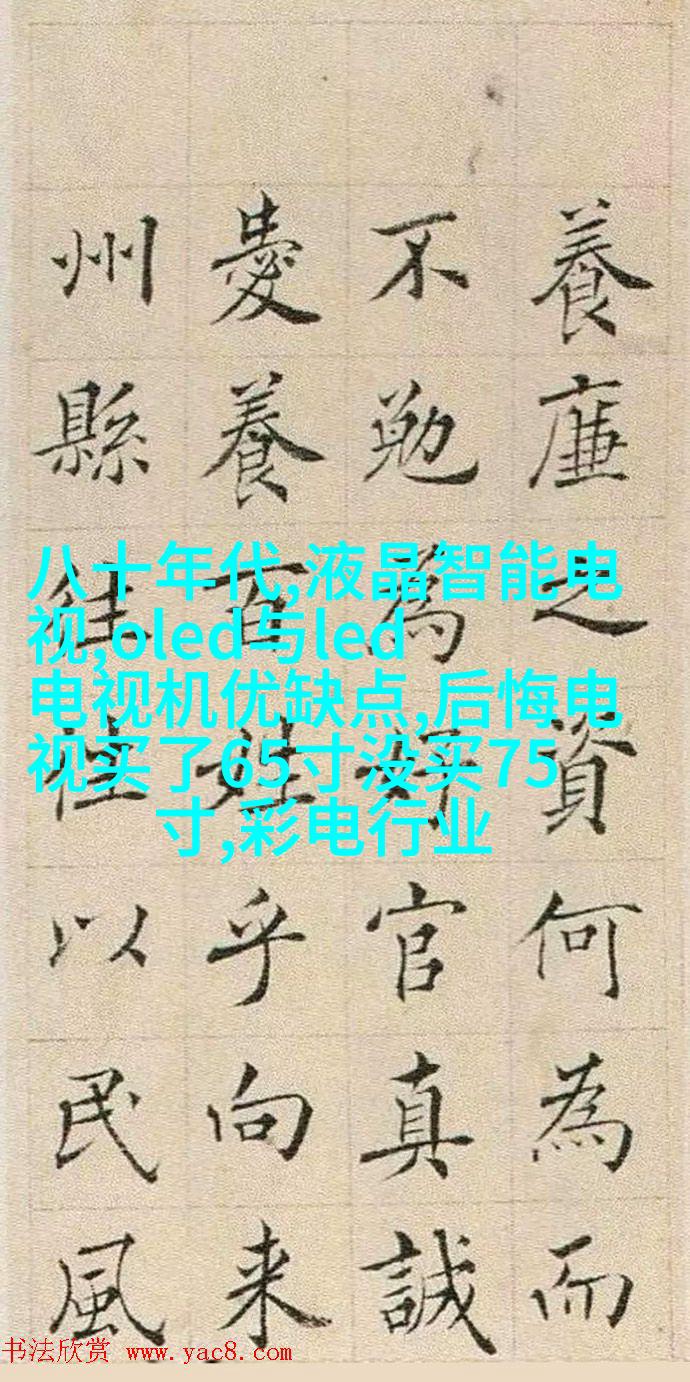 養廉之資何為而
不勉為好官真誠
愛養百姓乎向来
州縣往往以民風
八十年代,液晶智能电
视,oled与led
电视机优缺点,后悔电
视买了65寸没买75
寸,彩电行业
书法欣赏 www.yac8.com